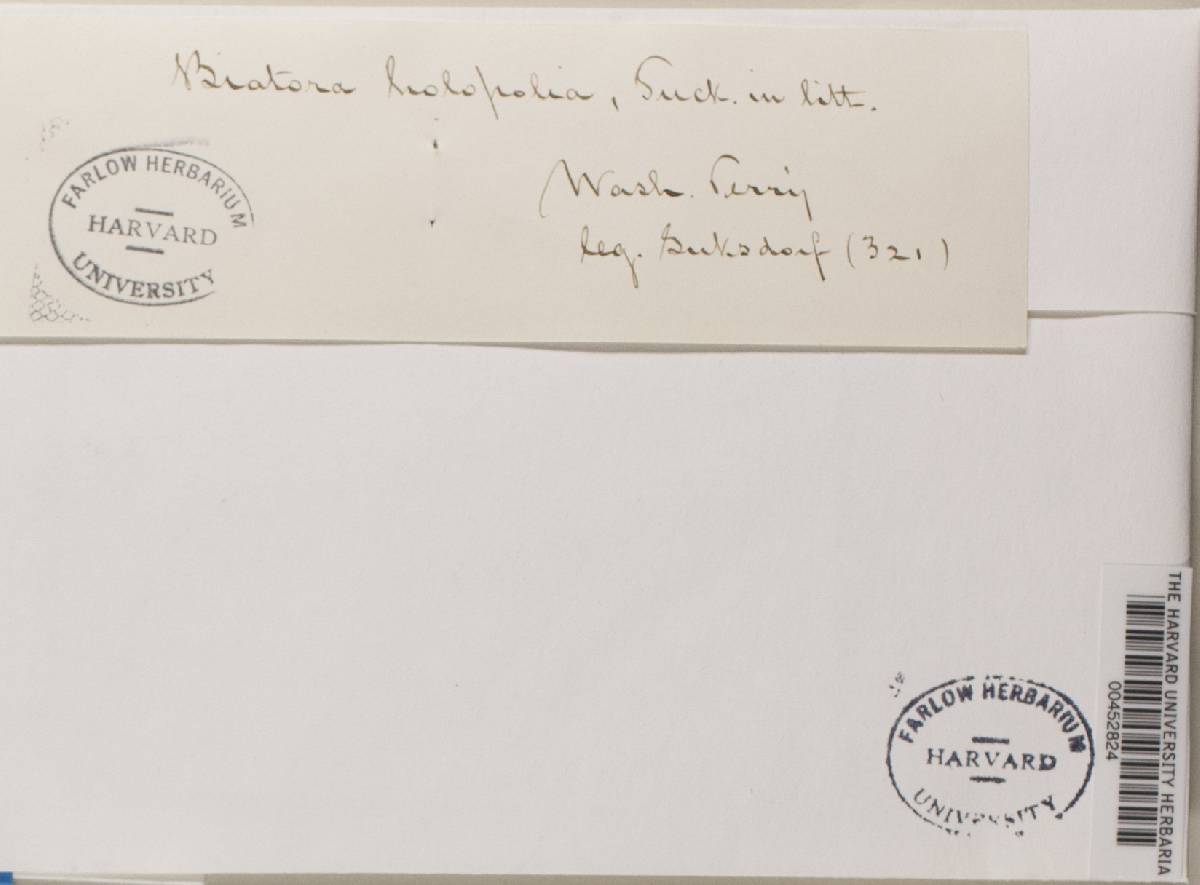 Biatora holopolia, Tuck. in litt.
Wash. Terr'y
leg. Suksdorf (321)
FARLOW HERBARIUM
HARVARD
UNIVERSITY
FARLOW HERBARIUM
HARVARD
UNIVERSITY
THE HARVARD UNIVERSITY HERBARIA
00452824